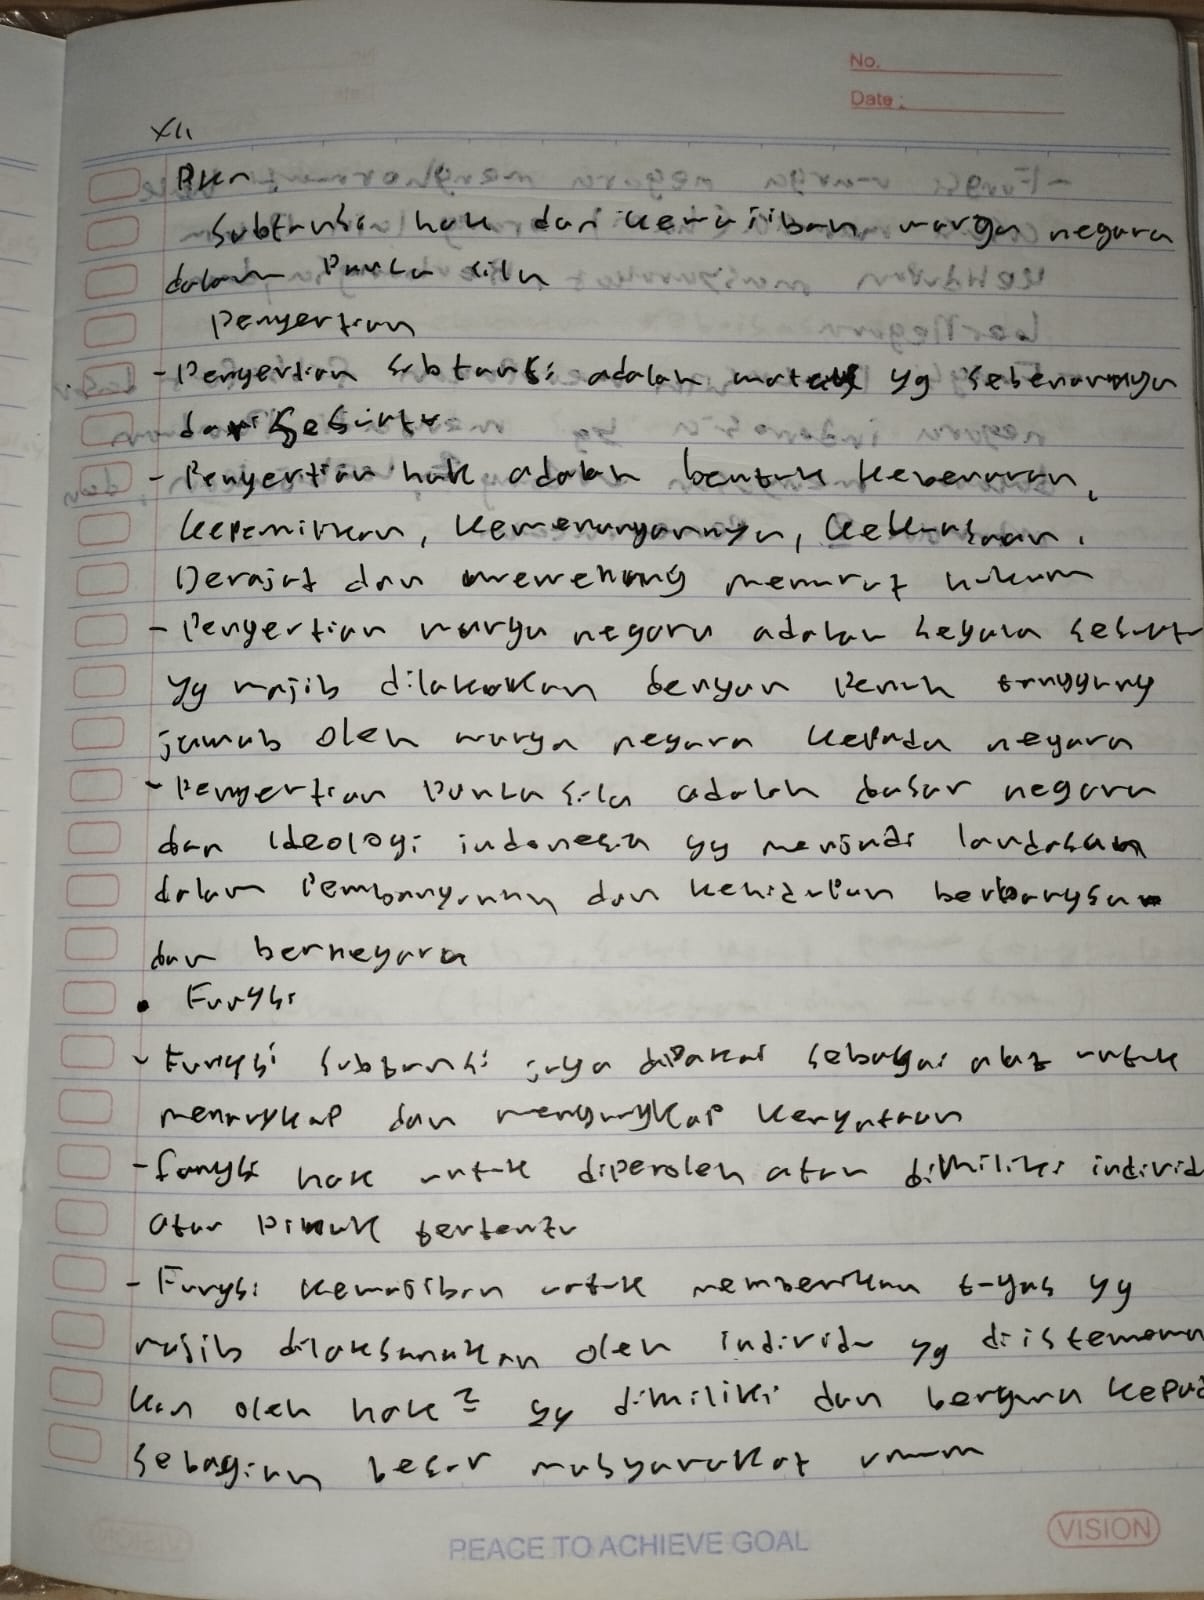 No.
Date :
XII
PKn
Subtansi hak dan kewajiban warga negara
dalam Pancasila
Pengertian
- Pengertian subtansi adalah yg sebenarnya
dari sesuatu
- Pengertian hak adalah bentuk kebenaran,
kepemilikan, kewenangannya, kekuasaan,
Derajat dan menurut hukum
- Pengertian warga negara adalah segala sesuatu
yg wajib dilakukan dengan penuh tanggung
jawab oleh warga negara kepada negara
- Pengertian Pancasila adalah dasar negara
dan Ideologi indonesia yg menjadi landasan
dalam Pembangunan dan kehidupan berbangsa
dan bernegara
• Fungsi
- Fungsi subtansi juga dipakai sebagai alat untuk
menangkap dan mengungkap kenyataan
- fungsi hak untuk diperoleh atau dimiliki individ
atau pihak tertentu
- Fungsi kewajiban untuk memberikan tugas yg
wajib dilaksanakan oleh individu yg
kan oleh hak² yg dimiliki dan berguna kepad
sebagian besar masyarakat umum
PEACE TO ACHIEVE GOAL
VISION